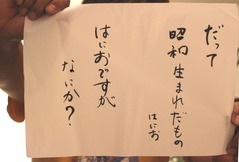 だって
昭和生まれだもの
はにお
はにおですが
なにか？